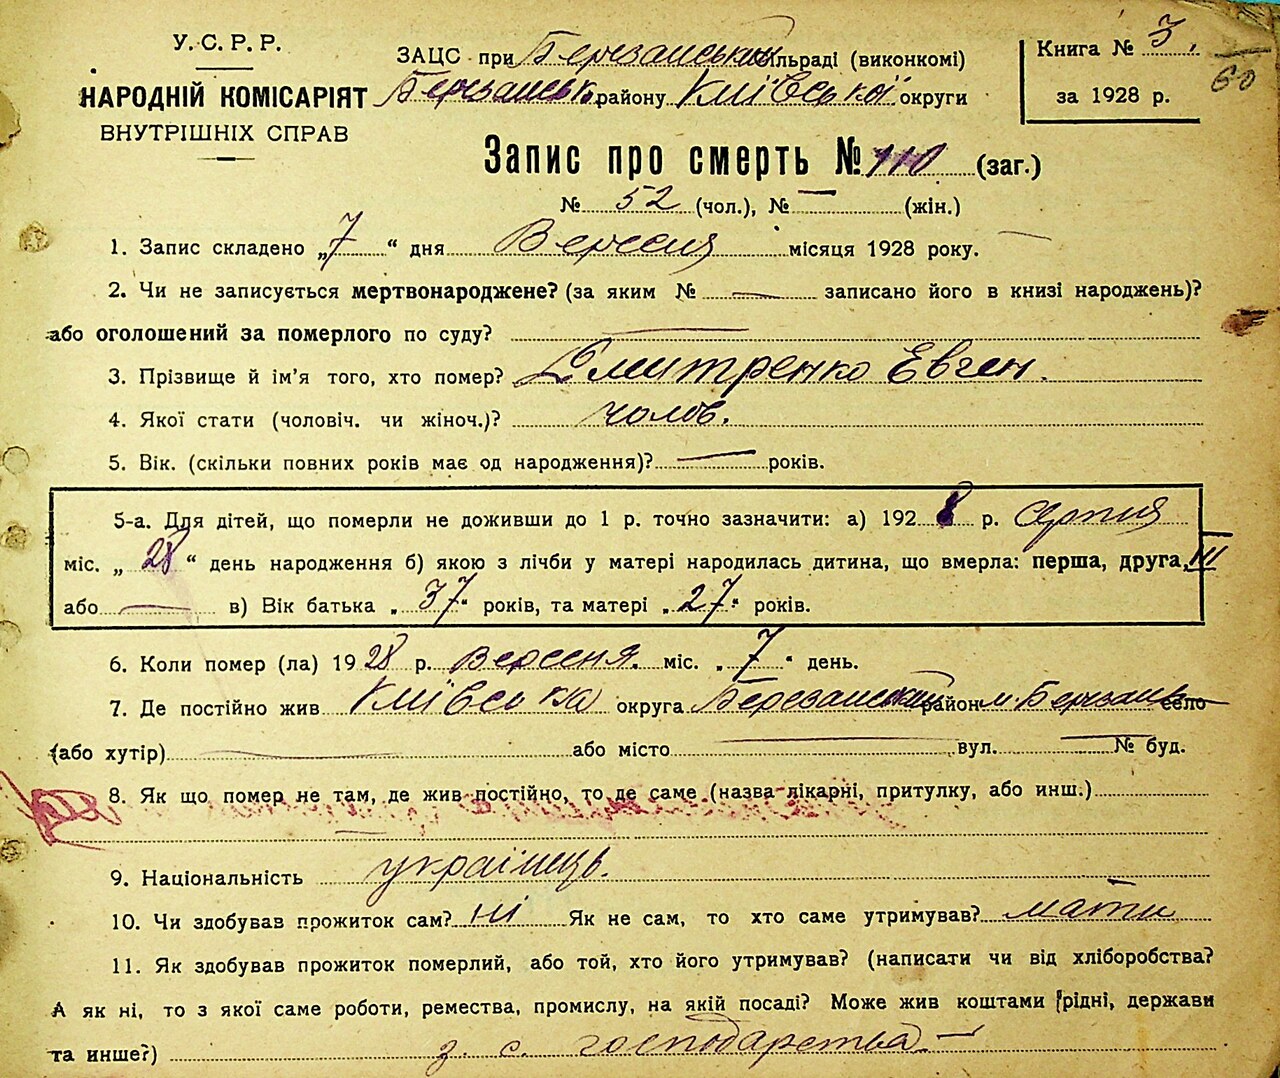 У.С.Р.Р.
НАРОДНІЙ КОМІСАРІЯТ
ВНУТРІШНІХ СПРАВ
ЗАЦС при Березанській сільраді (виконкомі)
Березанськ. району Київської округи
Книга № 3.
за 1928 р.
60
Запис про смерть № 110 (заг.)
№ 52 (чол.), № — (жін.)
1. Запис складено „7“ дня Вересня місяця 1928 року.
2. Чи не записується мертвонароджене? (за яким № — записано його в книзі народжень)?
або оголошений за померлого по суду? —
3. Прізвище й ім’я того, хто помер? Дмитренко Евген.
4. Якої стати (чоловіч. чи жіноч.)? чолов.
5. Вік. (скільки повних років має од народження)? — років.
5-а. Для дітей, що померли не доживши до 1 р. точно зазначити: а) 1928 р. серпня
міс. „28“ день народження б) якою з лічби у матері народилась дитина, що вмерла: перша, друга, III
або — в) Вік батька „37“ років, та матері „27“ років.
6. Коли помер (ла) 1928 р. вересня. міс. „7“ день.
7. Де постійно жив Київська округа Березанський район м. Березань село
(або хутір) — або місто — вул. — № буд.
8. Як що помер не там, де жив постійно, то де саме (назва лікарні, притулку, або инш.)
—
9. Національність українець.
10. Чи здобував прожиток сам? ні Як не сам, то хто саме утримував? мати
11. Як здобував прожиток померлий, або той, хто його утримував? (написати чи від хліборобства?
А як ні, то з якої саме роботи, ремества, промислу, на якій посаді? Може жив коштами рідні, держави
та инше?) з с. господарства —